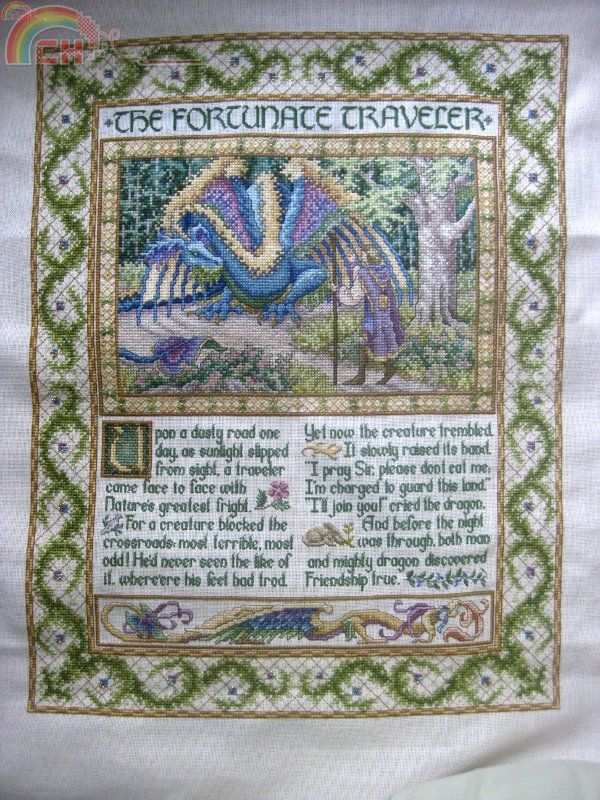 THE FORTUNATE TRAVELER
Upon a dusty road one
day, as sunlight slipped
from sight, a traveler
came face to face with
Nature's greatest fright.
For a creature blocked the
crossroads; most terrible, most
odd! He'd never seen the like of
it, where'ere his feet had trod.
Yet now the creature trembled.
It slowly raised its hand.
"I pray Sir, please don't eat me;
I'm charged to guard this land."
"I'll join you!" cried the dragon.
And before the night
was through, both man
and mighty dragon discovered
Friendship true.
CH